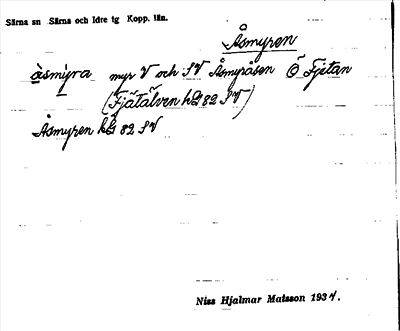 Särna sn Särna och Idre tg Kopp. län.
Åsmyren
åsmýra myr V och SV Åsmyråsen Ö Fjätan
(Fjätälven hG 82 SV)
Åsmyren hG 82 SV
Niss Hjalmar Matsson 1934.